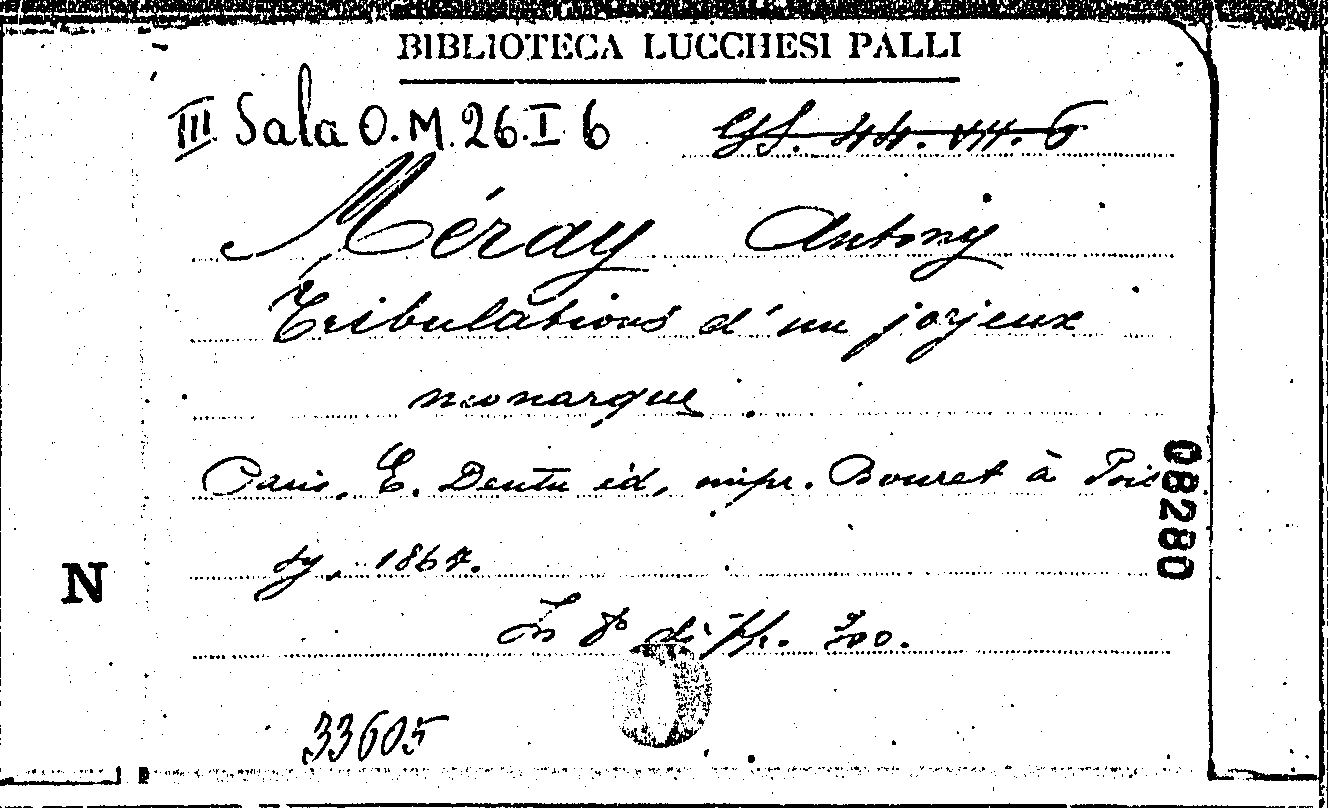 BIBLIOTECA LUCCHESI PALLI
III Sala O.M. 26. I 6
Méray Antony
Tribulations d'un joyeux
monarque.
Paris, E. Dentu éd, impr. Bouret à Pois
sy, 1867.
In 8° di pp. 300.
33605
N
08280